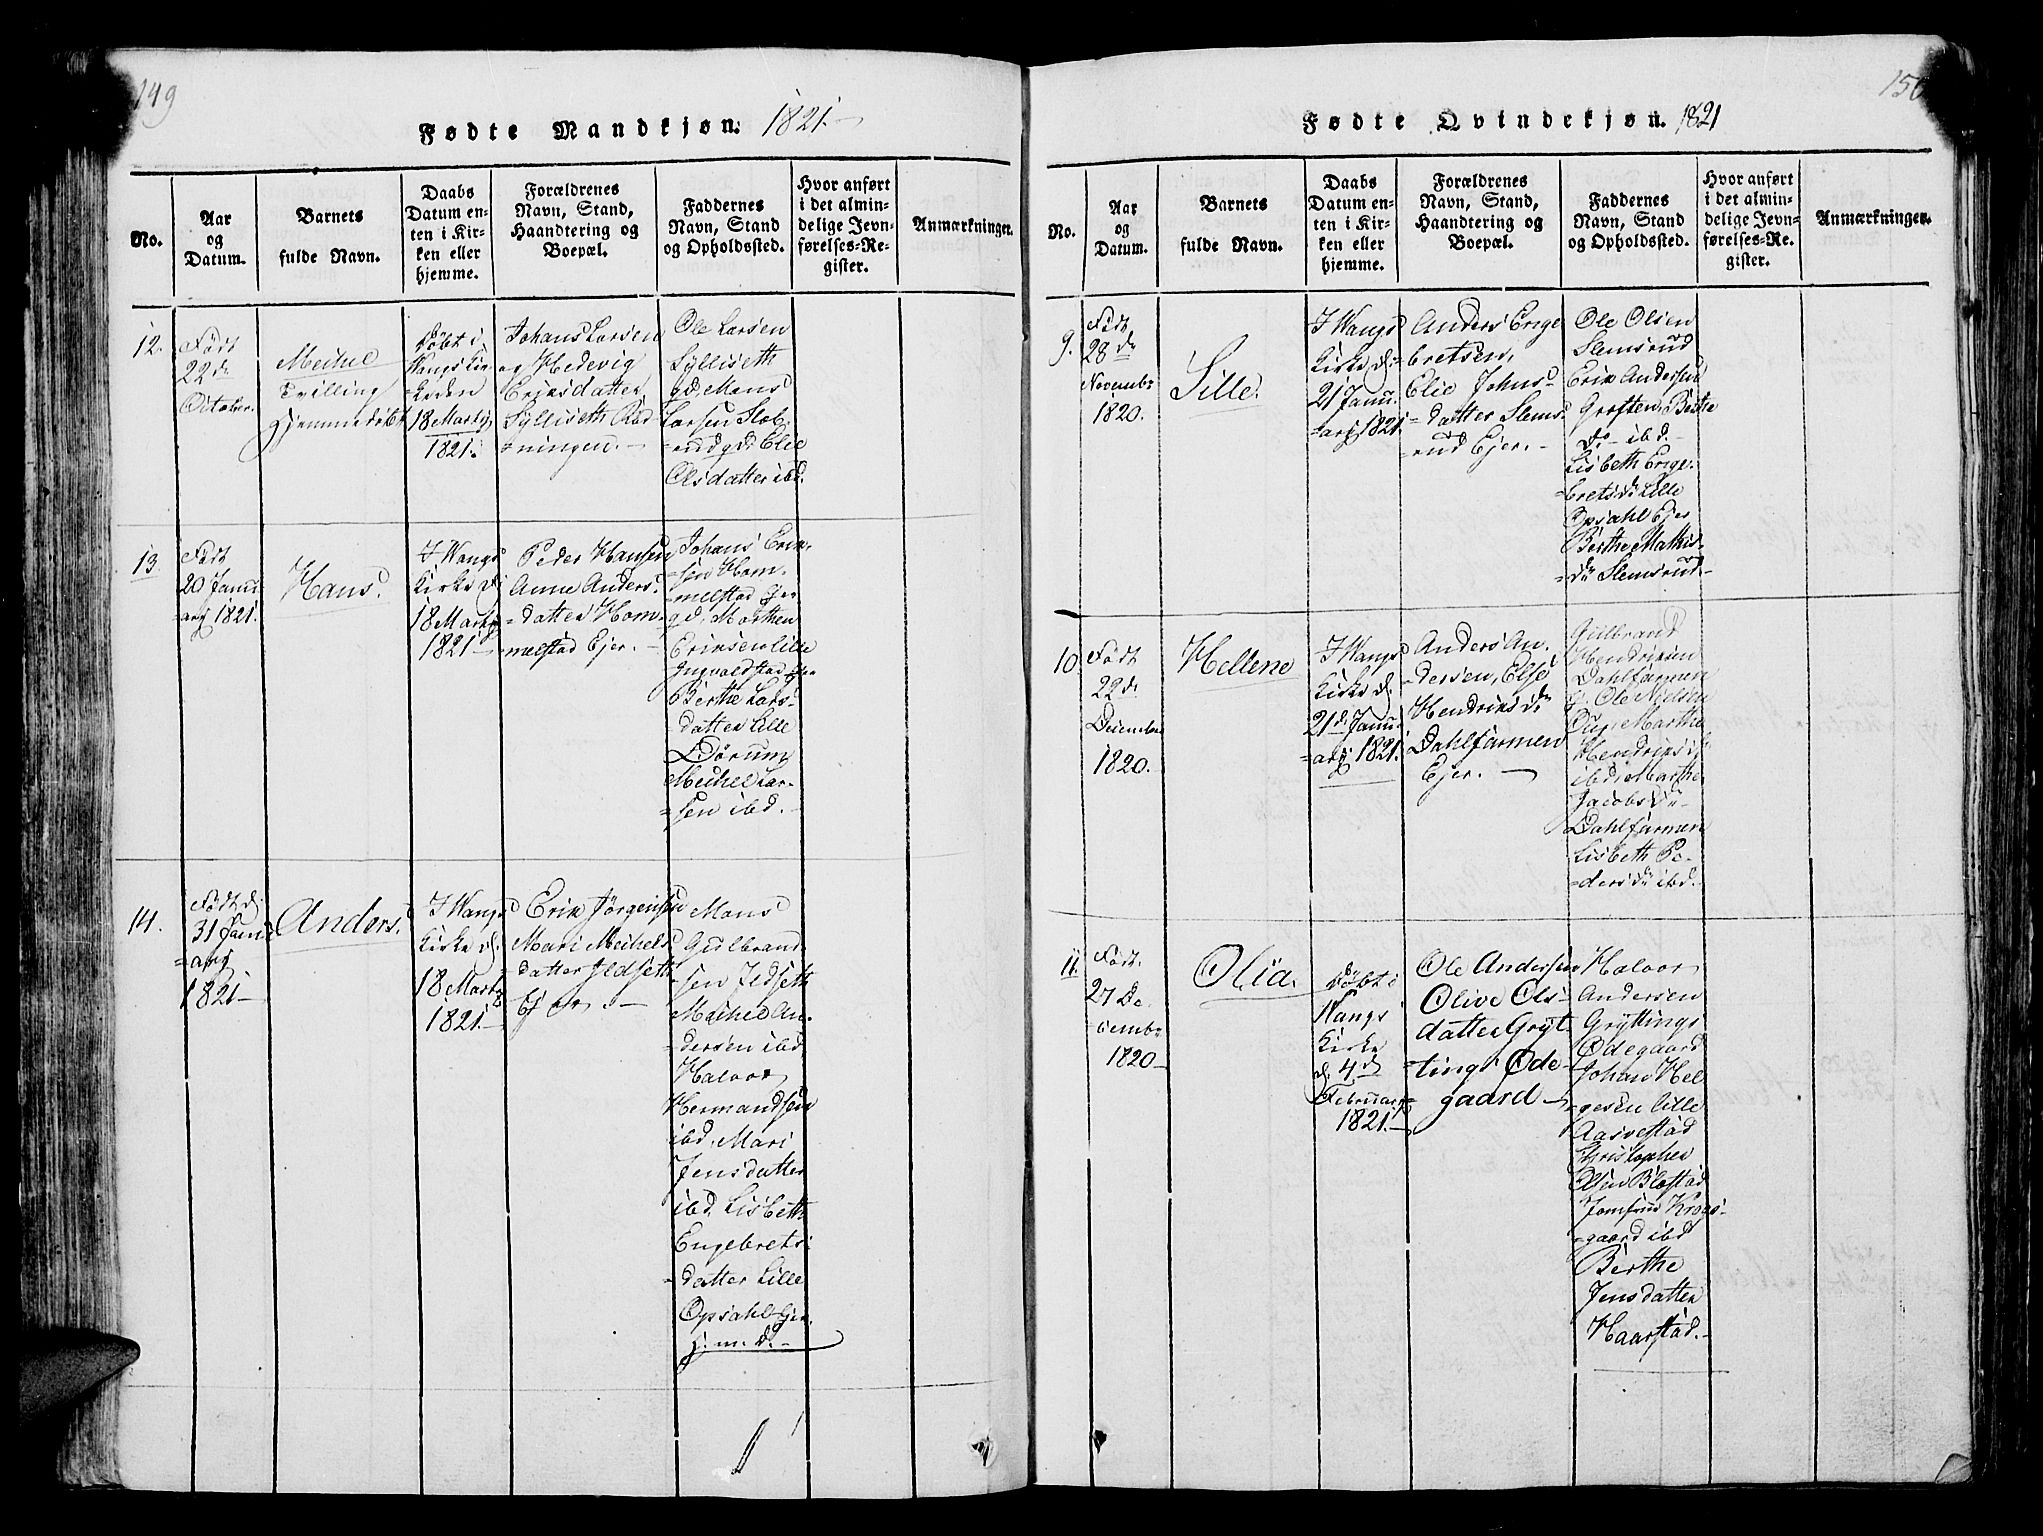 149
Fødte Mandkjøn. 1821.
No.
Aar
og
Datum.
Barnets
fulde Navn.
Daabs
Datum en-
ten i Kir-
ken eller
hjemme.
Forældrenes
Navn, Stand,
Haandtering og
Boepæl.
Faddernes
Navn, Stand
og Opholdssted.
Hvor anført
i det almin-
delige Jevn-
førelses-Re-
gister.
Anmærkninger.
12.
Født
22de
October.
Meihel
Tvilling
hjemmedøbt
Døbt i
Wangs Kir-
18 Marty
1821.
Johans Larsen
og Hedevig
Eriksdatter
Sylliseth Rød
=ningen.
Ole Larsen
Sylliseth
gd. Mons
Larsen Slob
rud gd. Elie
Olsdatter ibd.
13.
Født
20 Janu
=ary 1821.
Hans
I Wangs
Kirke d:
18 Marty
1821
Peder Hansen
Anne Anders
=datter Hom
=melstad Ejer.
Johans Erik.
=sen Hom.
=melstad Ejer
gd. Morthen
Eriksen Lille
Ingvaldstad
Berthe Lars
=datter Lille
Dørum
Meihel Lar-
=sen ibd.
14.
Født d.
31 Janu
=ary
1821
Anders.
I Wangs
Kirke d.
18 Marty
1821.
Erik Jørgensen
Mari Meihels
=datter Ildseth
Ejer.
Mons
Gulbrand
=sen Ildseth
Meihel An.
=dersen ibd
Halvor
Hermandsen
ibd. Mari
Jensdatter
ibd Lisbeth
Engebrets
=datter Lille
Opsahl Ejer
h. m. d.
150
Fødte Qvindekjøn. 1821
No.
Aar
og
Datum.
Barnets
fulde Navn.
Daabs
Datum en-
ten i Kir-
ken eller
hjemme.
Forældrenes
Navn, Stand,
Haandtering og
Boepæl.
Faddernes
Navn, Stand
og Opholdssted.
Hvor anført
i det almin-
delige Jevn-
førelses-Re-
gister.
Anmærkninger.
9.
Født
28de
Novembr
1820.
Sille.
I Wangs
Kirke d:
21 Janu
=ary 1821
Anders Enge
bretsen,
Elie Johns
=datter Slems
=rud Ejer.
Ole Olsen
Slemsrud
Erik Andersen
Groften, Berthe
Do ibd.
Lisbeth Enge.
=brets Dr Lille
Opsahl Ejer
Berthe Mathis
=dr Slemsrud.
10
Født
22 de
December
1820.
Hellene
I Wangs
Kirke d.
21 d. Janu
=ary 1821.
Anders An.
=dersen, Else
Hendriks dr
Dahlfarmen
Ejer.
Gulbrand
Hendriksen
Dahlfarmen
g. Ole Nielsen
Marthe
Hendriks dr
ibd, Marthe
Jacobs dr
Dahlfarmen
Lisbeth Pe-
=ders dr ibd.
11.
Født.
27 De.
cembr
1820
Olia.
Døbt i
Wangs
Kirke
d. 4de
Februari
1821.
Ole Andersen
Olive Ols
datter Gryt
=tings Øde
gaard
Halvor
Andersen
Gryttings
Ødegaard
Johan Hel
=gesen Lille
Aasvestad
Christopher
Olsen Blæstad
Jomfrue Krogs
=gaard ibd
Berthe
Jensdatter
Haarstad.